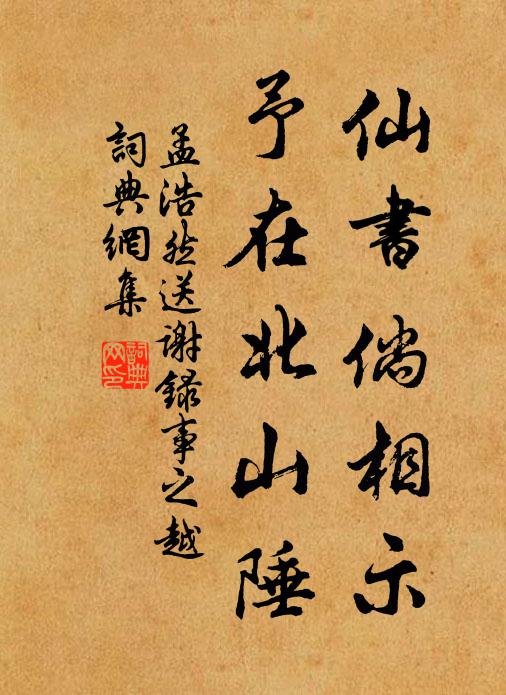 仙書倘相示
予在北山陲
孟浩然送谢錄事之越
詞典網集
詞典網印